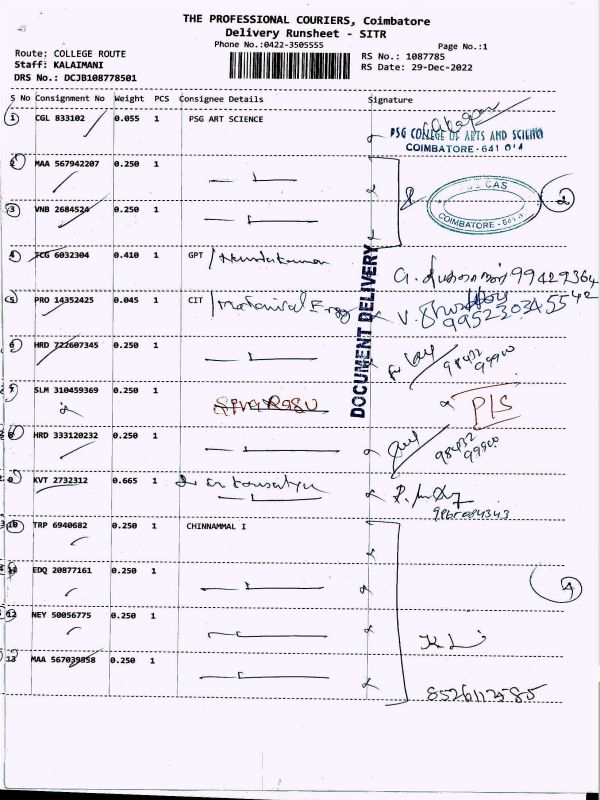 THE PROFESSIONAL COURIERS, Coimbatore
Delivery Runsheet - SITR
Phone No.:0422-3505555
Page No.:1
Route: COLLEGE ROUTE
Staff: KALAIMANI
DRS No.: DCJB108778501
RS No.: 1087785
RS Date: 29-Dec-2022
S No Consignment No Weight PCS Consignee Details Signature
1 CGL 833102 0.055 1 PSG ART SCIENCE
PSG COLLEGE OF ARTS AND SCIENCE
COIMBATORE - 641 014
2 MAA 567942207 0.250 1
CAS
COIMBATORE - 641 014
2
3 VNB 2684524 0.250 1
4 TCG 6032304 0.410 1 GPT
DOCUMENT DELIVERY
5 PRO 14352425 0.045 1 CIT
9952303455
6 HRD 722607345 0.250 1
98432
99900
7 SLM 310459369 0.250 1
P/S
8 HRD 333120232 0.250 1
98432
99900
9 KVT 2732312 0.665 1
10 TRP 6940682 0.250 1 CHINNAMMAL I
11 EDQ 20877161 0.250 1
4
12 NEY 50056775 0.250 1
13 MAA 567039858 0.250 1